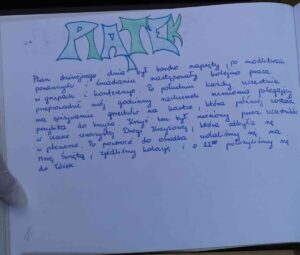 PIĄTEK
Plan dzisiejszego dnia był bardzo napięty, po modlitwach
porannych i śniadaniu następowały kolejno praca
w grupach i konferencje. Po południu każdy uczestnik
przeprowadził swój godzinny rachunek sumienia polegający
na spisywaniu grzechów na kartce, która później została
przybita do krzyża. Krzyż ten był niesiony przez uczestników
w czasie wieczornej Drogi Krzyżowej, która odbyła się
w plenerze. Po powrocie do ośrodka udaliśmy się na
Mszę Świętą, zjedliśmy kolację i o 22⁰⁰ położyliśmy się
do łóżek.